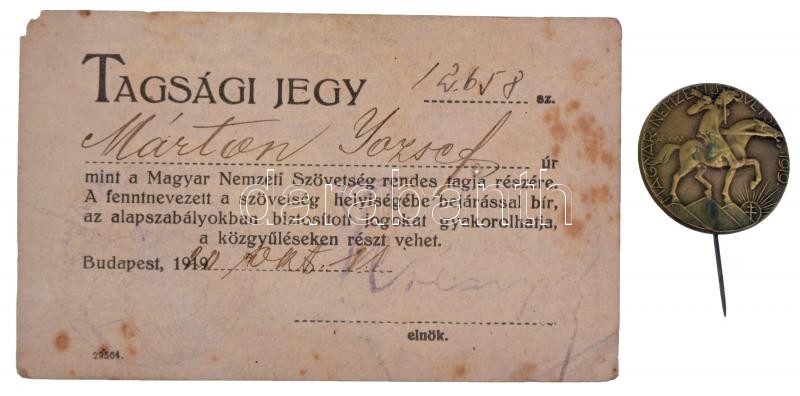 TAGSÁGI JEGY
12.658 sz.
Márton József úr
mint a Magyar Nemzeti Szövetség rendes tagja részére.
A fenntnevezett a szövetség helyiségébe bejárással bír,
az alapszabályokban biztosított jogokat gyakorolhatja,
a közgyűléseken részt vehet.
Budapest, 1919 okt.
elnök.
29564.
MAGYAR NEMZETI SZÖVETSÉG 1919
darabanth